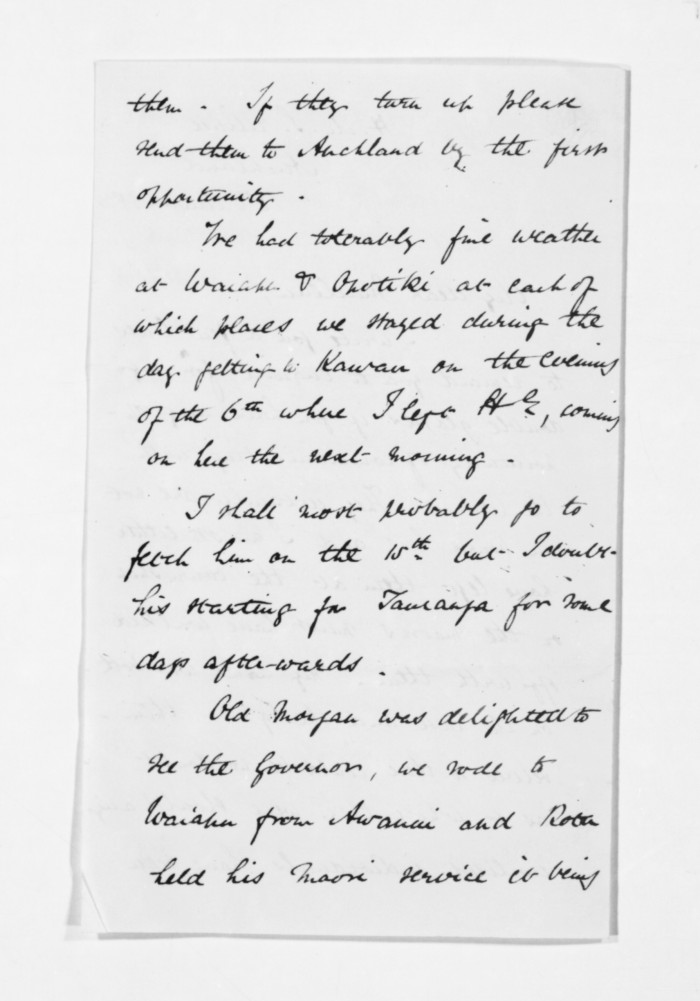 them. If they turn up please
send them to Auckland by the first
opportunity.
We had tolerably fine weather
at Waiapu & Opotiki at each of
which places we stayed during the
day getting to Kawau on the evening
of the 6th where I left H.E., coming
on here the next morning.
I shall most probably go to
fetch him on the 15th but I doubt
his starting for Tauranga for some
days afterwards.
Old Morgan was delighted to
see the Governor, we rode to
Waiapu from Awanui and Rota
held his Maori service it being